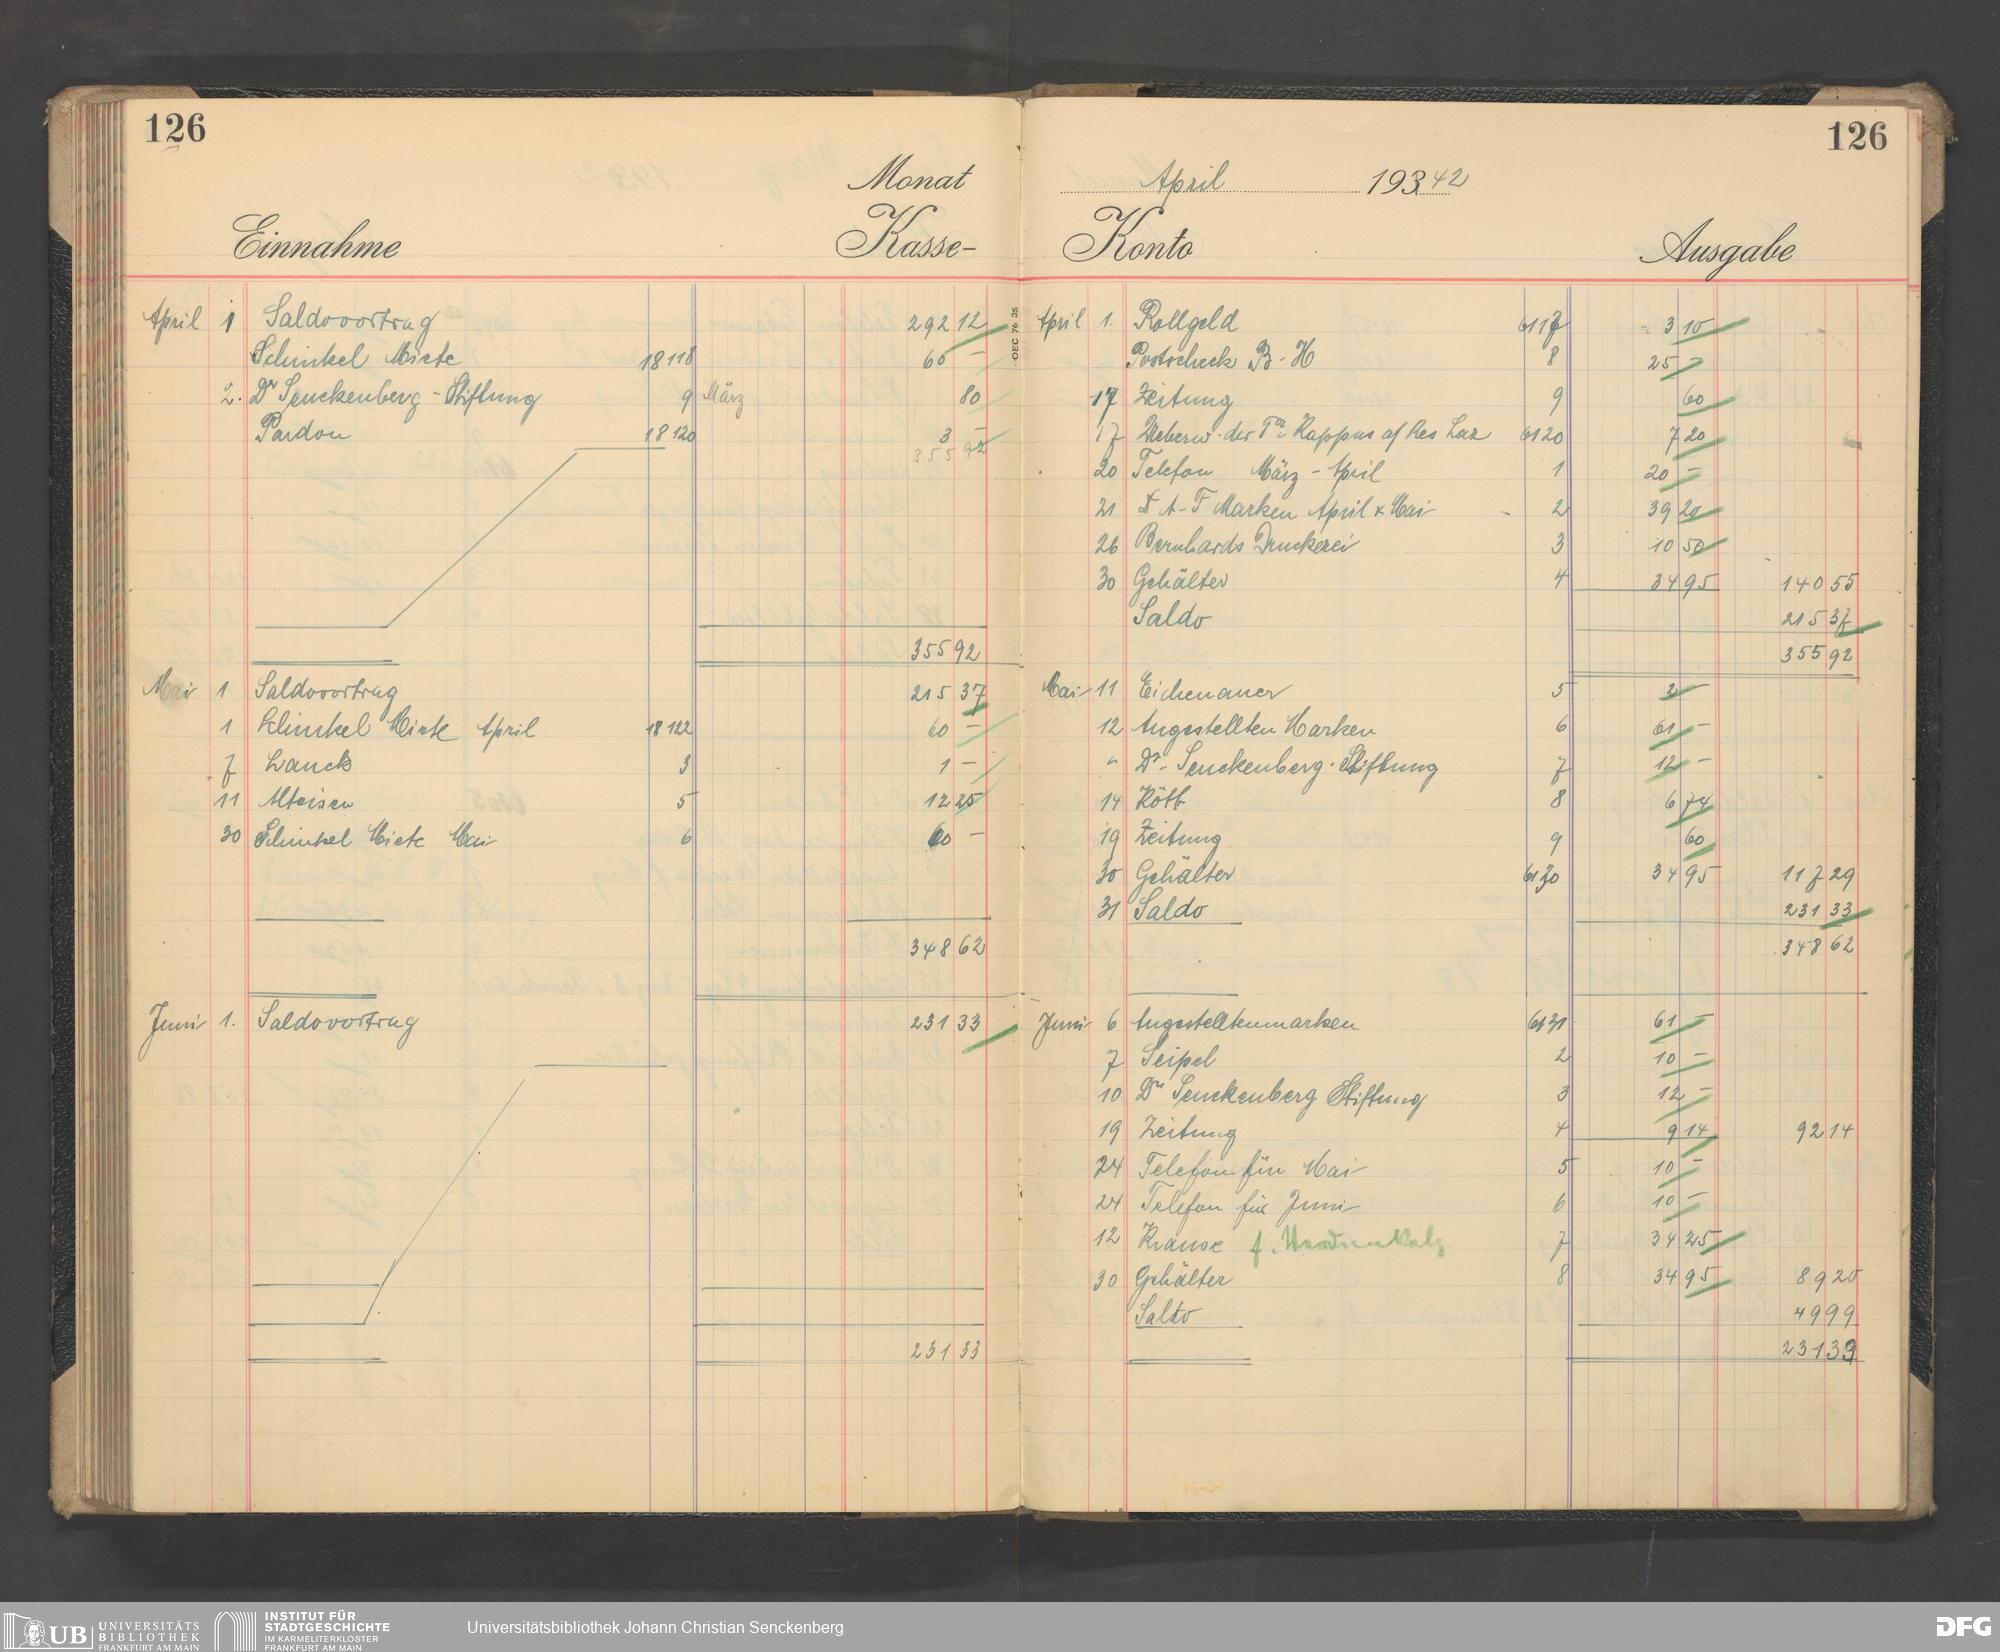 126
Monat
Einnahme
Kasse-
April 1 Saldovortrag 292 12
Schinkel Miete 18118 60 –
2. Dr Senckenberg-Stiftung 9 März 80
Pardon 18120 3 –
355 92
355 92
Mai 1 Saldovortrag 215 37
1 Schinkel Miete April 18122 60 –
7 Lauck 3 1 –
11 Alteisen 5 12 25
30 Schinkel Miete Mai 6 60 –
348 62
Juni 1. Saldovortrag 231 33
231 33
126
April 19342
Konto
Ausgabe
OEC 76 35
April 1. Rollgeld 6117 3 10
Postscheck B-H 8 25 –
17 Zeitung 9 60
17 Ueberw. der Kappus Res Laz 6120 7 20
20 Telefon März - April 1 20 –
21 D A-F Marken April & Mai 2 39 20
26 Bernhards Druckerei 3 10 50
30 Gehälter 4 34 95 140 55
Saldo 215 37
355 92
Mai 11 Eichenauer 5 2 –
12 Angestellten Marken 6 61 –
" Dr. Senckenberg-Stiftung 7 12 –
14 Kött 8 6 74
19 Zeitung 9 60
30 Gehälter 6130 34 95 117 29
31 Saldo 231 33
348 62
Juni 6 Angestelltenmarken 6131 61 –
7 Seipel 2 10 –
10 Dr Senckenberg Stiftung 3 12 –
19 Zeitung 4 9 14 92 14
24 Telefon für Mai 5 10 –
24 Telefon für Juni 6 10 –
12 Krause f. 7 34 25
30 Gehälter 8 34 95 89 20
Saldo 49 99
231 33
UB UNIVERSITÄTS
BIBLIOTHEK
FRANKFURT AM MAIN
INSTITUT FÜR
STADTGESCHICHTE
IM KARMELITERKLOSTER
FRANKFURT AM MAIN
Universitätsbibliothek Johann Christian Senckenberg
DFG